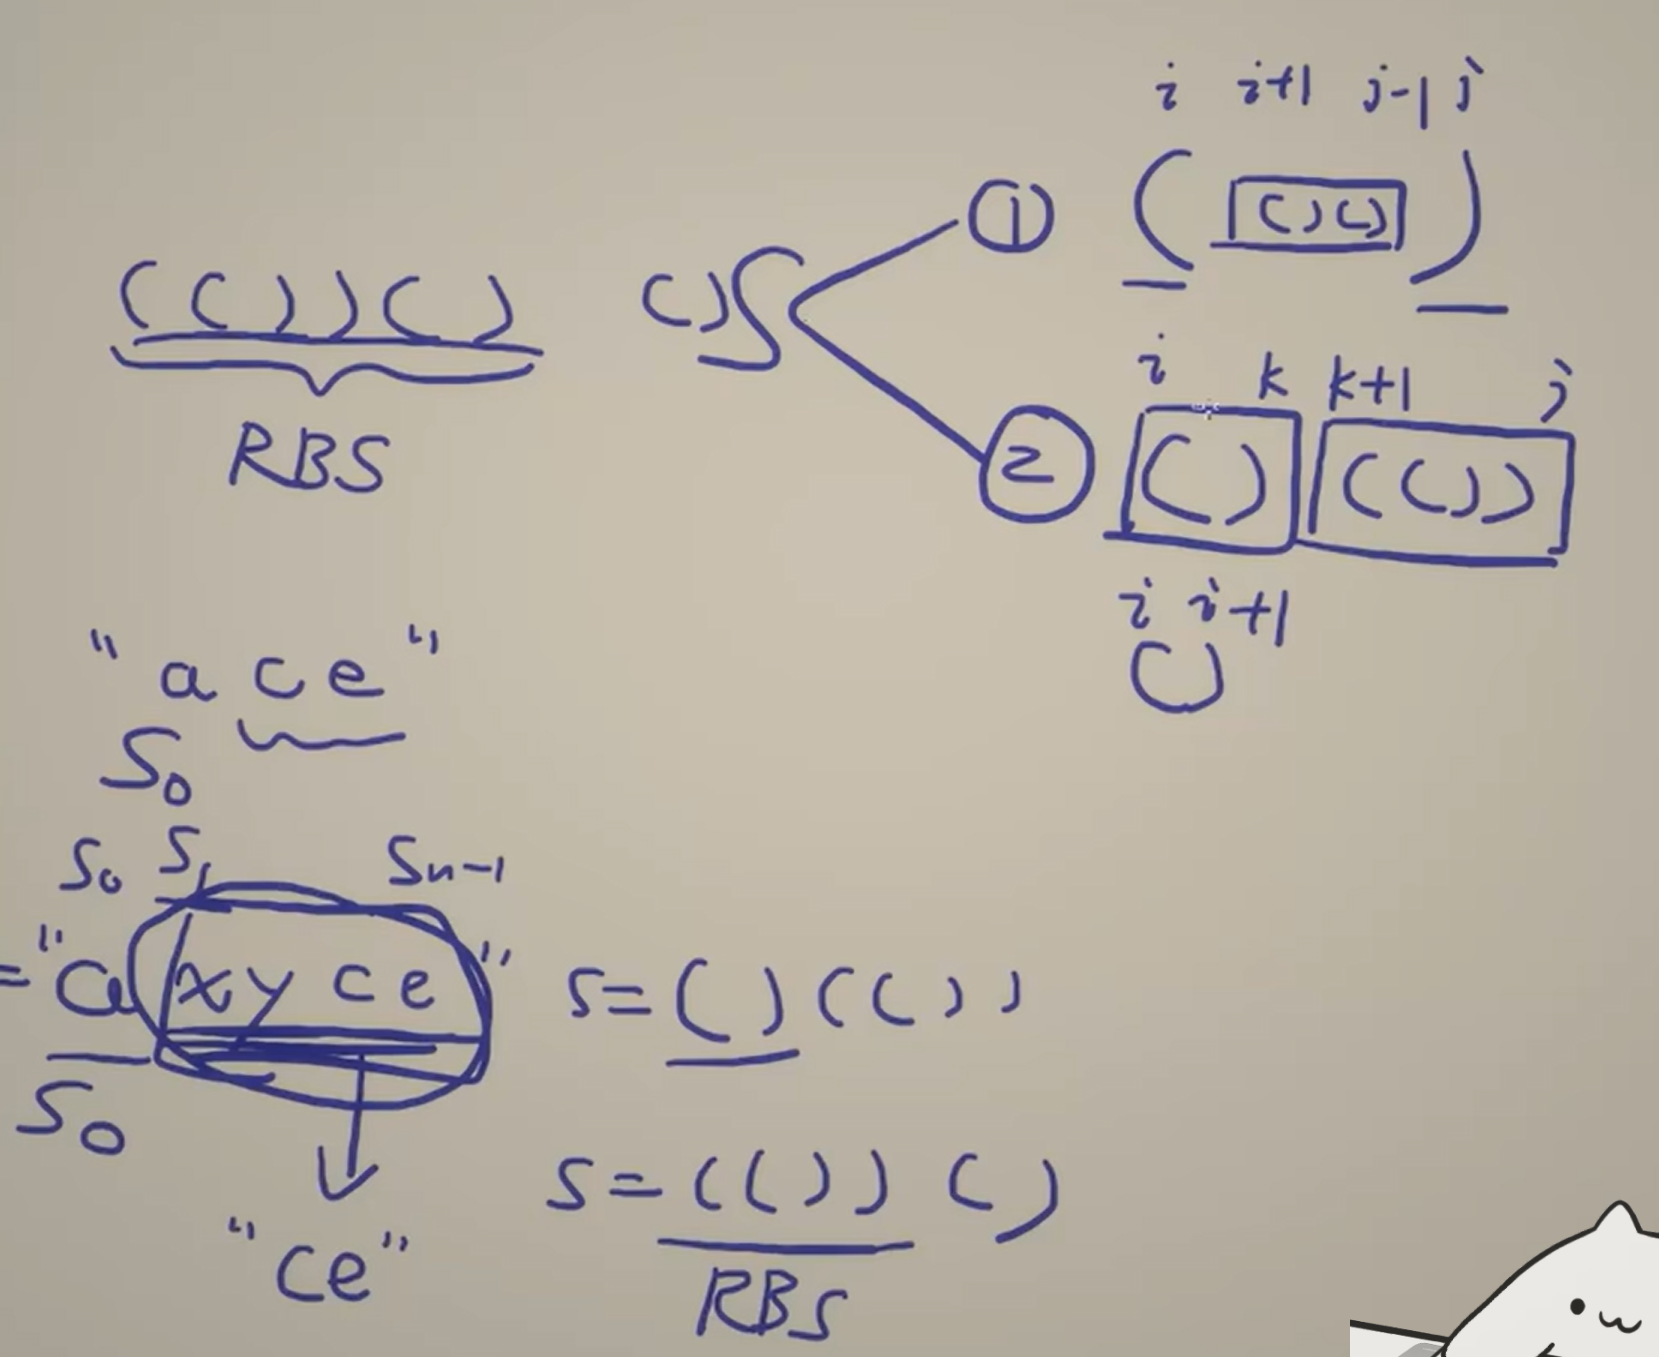 i i+1 j-1 j
① ( ()() )
(())() ()S
RBS
i k k+1 j
② () (())
i i+1
()
"ace"
S0
S0 S1 Sn-1
="axyce"
S0
"ce"
S=()(())
S=(())()
RBS